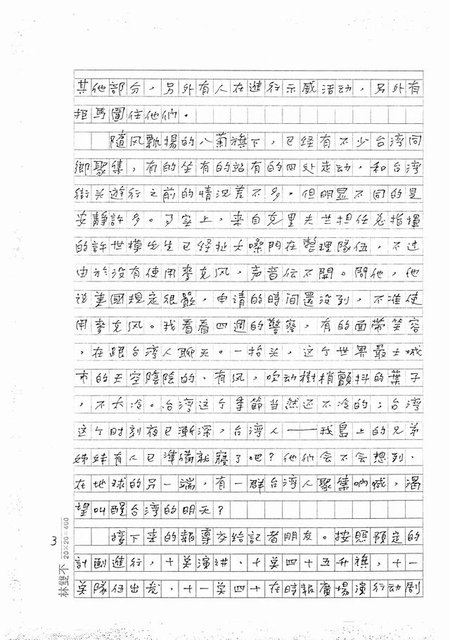 其他部分，另外有人在進行示威活动，另外有
拒馬圍住他们。
隨風飄揚的八菊旗下，已经有不少台湾同
鄉聚集，有的坐有的站有的四处走动，和台湾
街头遊行之前的情況差不多，但明显不同的是
安靜許多。事实上，来自克里夫兰担任总指揮
的許世模先生已经扯大嗓門在整理隊伍，不过
由於沒有使用麥克风，声音传不開。問他，他
说美國規定很嚴，申请的時间還沒到，不准使
用麥克风。我看看四週的警察，有的面帶笑容
，在跟台湾人聊天。一抬头，这个世界最大城
市的天空陰陰的，有风，吹动樹梢顫抖的葉子
，不太冷。台湾这个季節当然还不冷的；台湾
这个时刻夜已漸深，台湾人——我島上的兄弟
姊妹有人已準備就寢了吧？他们会不会想到，
在地球的另一端，有一群台湾人聚集吶喊，渴
望叫醒台湾的明天？
接下来的報導交给記者朋友。按照預定的
計劃進行，十点演讲，十点四十五升旗，十一
点隊伍出發，十一点四十在時報廣場演行动劇
3
林雙不 20×20=400